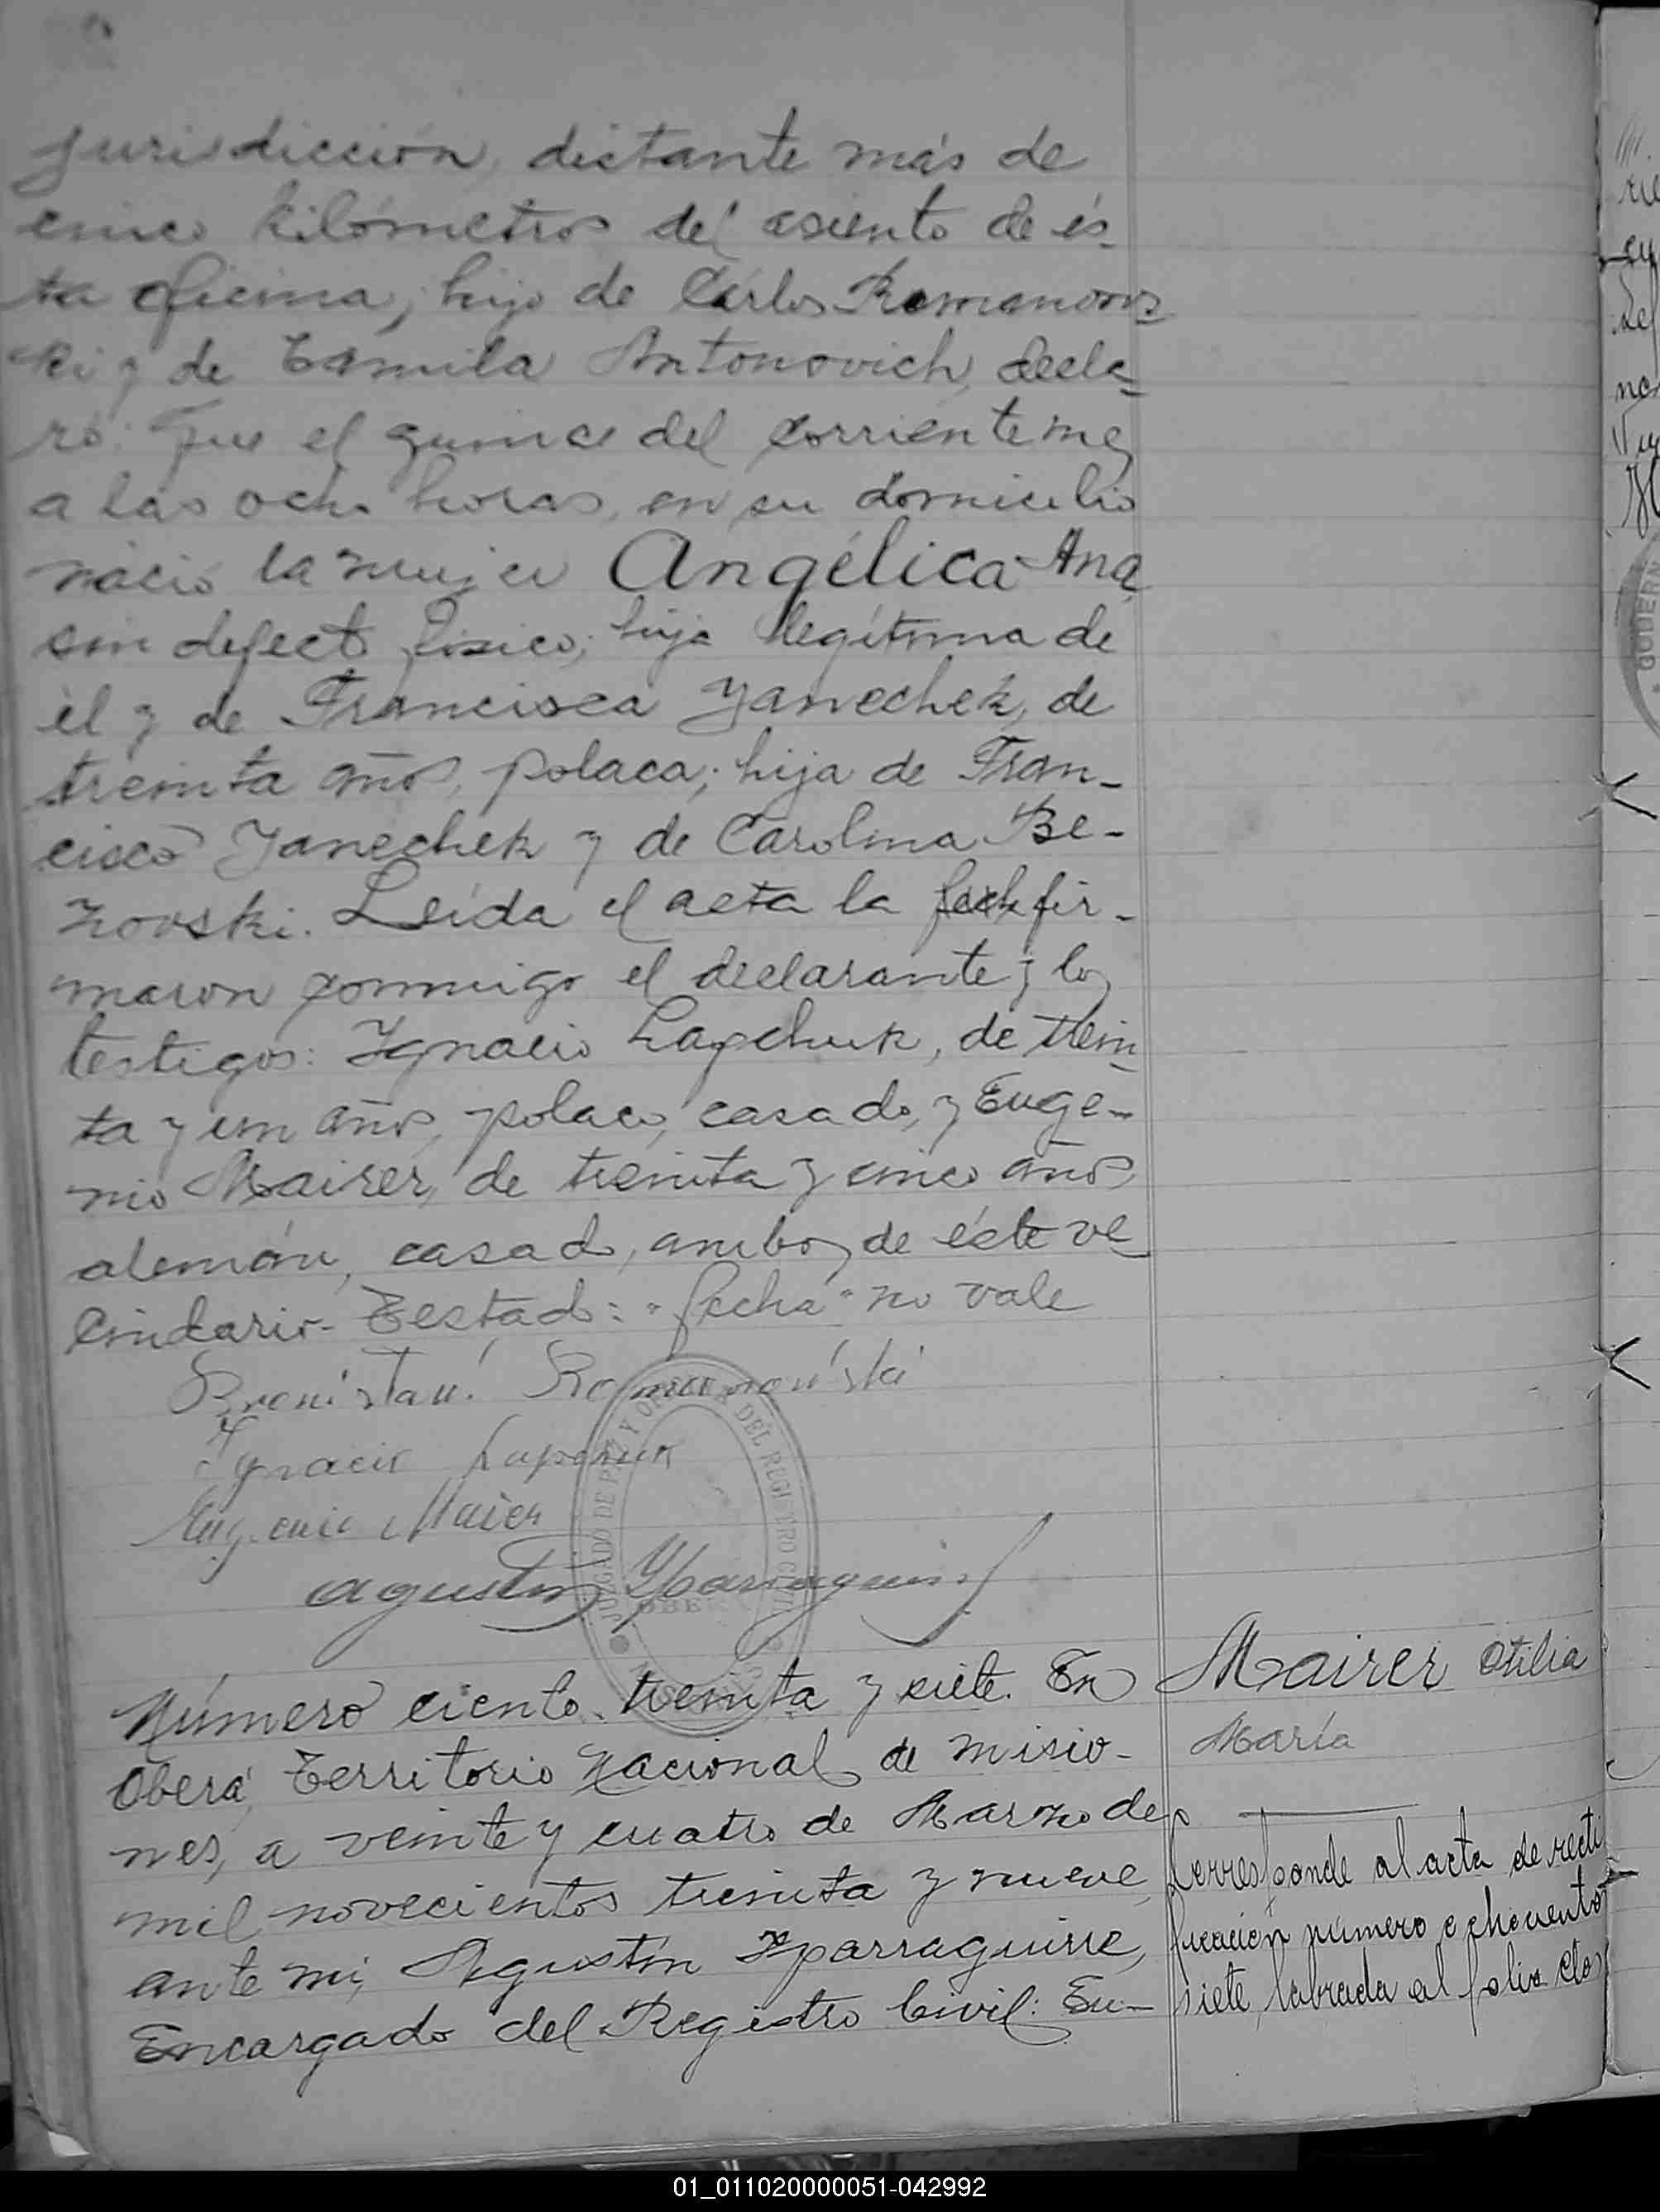 jurisdicción, distante más de
cinco kilómetros del asiento de és-
ta oficina; hijo de Carlos Romanows-
ki y de Camila Antonovich, decla-
ró: Que el quince del corriente mes
a las ocho horas, en su domicilio
nació la mujer Angélica Ana
sin defecto físico; hija legítima de
él y de Francisca Yanechek, de
treinta años, polaca; hija de Fran-
cisco Yanechek y de Carolina Be-
zovski. Leída el acta la fecha fir-
maron conmigo el declarante y los
testigos: Ignacio Lapchuk, de trein-
ta y un años, polaco, casado, y Euge-
nio Mairer, de treinta y cinco años
alemán, casado, ambos de éste ve-
cindario- Testado: "fecha" no vale
Romanouski
Ignacio Lapchuk
Eugenio Maier
Agustin Yparraguirre
JUZGADO DE PAZ Y OFICINA DEL REGISTRO CIVIL
OBERA
Número ciento treinta y siete. En
Oberá, Territorio Nacional de Misio-
nes, a veinte y cuatro de Marzo de
mil novecientos treinta y nueve,
ante mí, Agustín Yparraguirre,
Encargado del Registro Civil: Eu-
Mairer Otilia
María
Corresponde al acta de recti
ficación número ochocientos
siete, labrada al folio dos
GOBERN
01_011020000051-042992